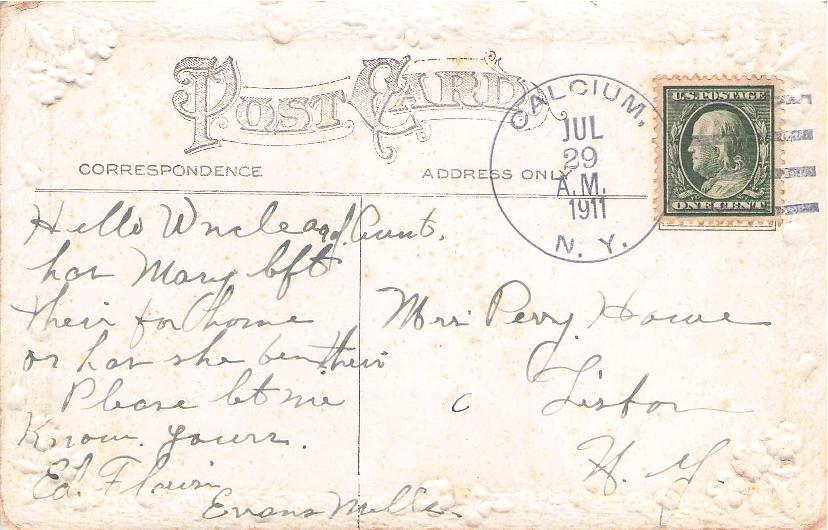 POST CARD
CORRESPONDENCE
ADDRESS ONLY
CALCIUM,
JUL
29
A.M.
1911
N. Y.
U.S. POSTAGE
ONE CENT
Hello Uncle and Aunt.
has Mary left
their for home
or has she ben their
Please let me
Know. Yours.
Ed.
Evans Mills.
Mrs. Perry Howe
Lisbon
N. Y.